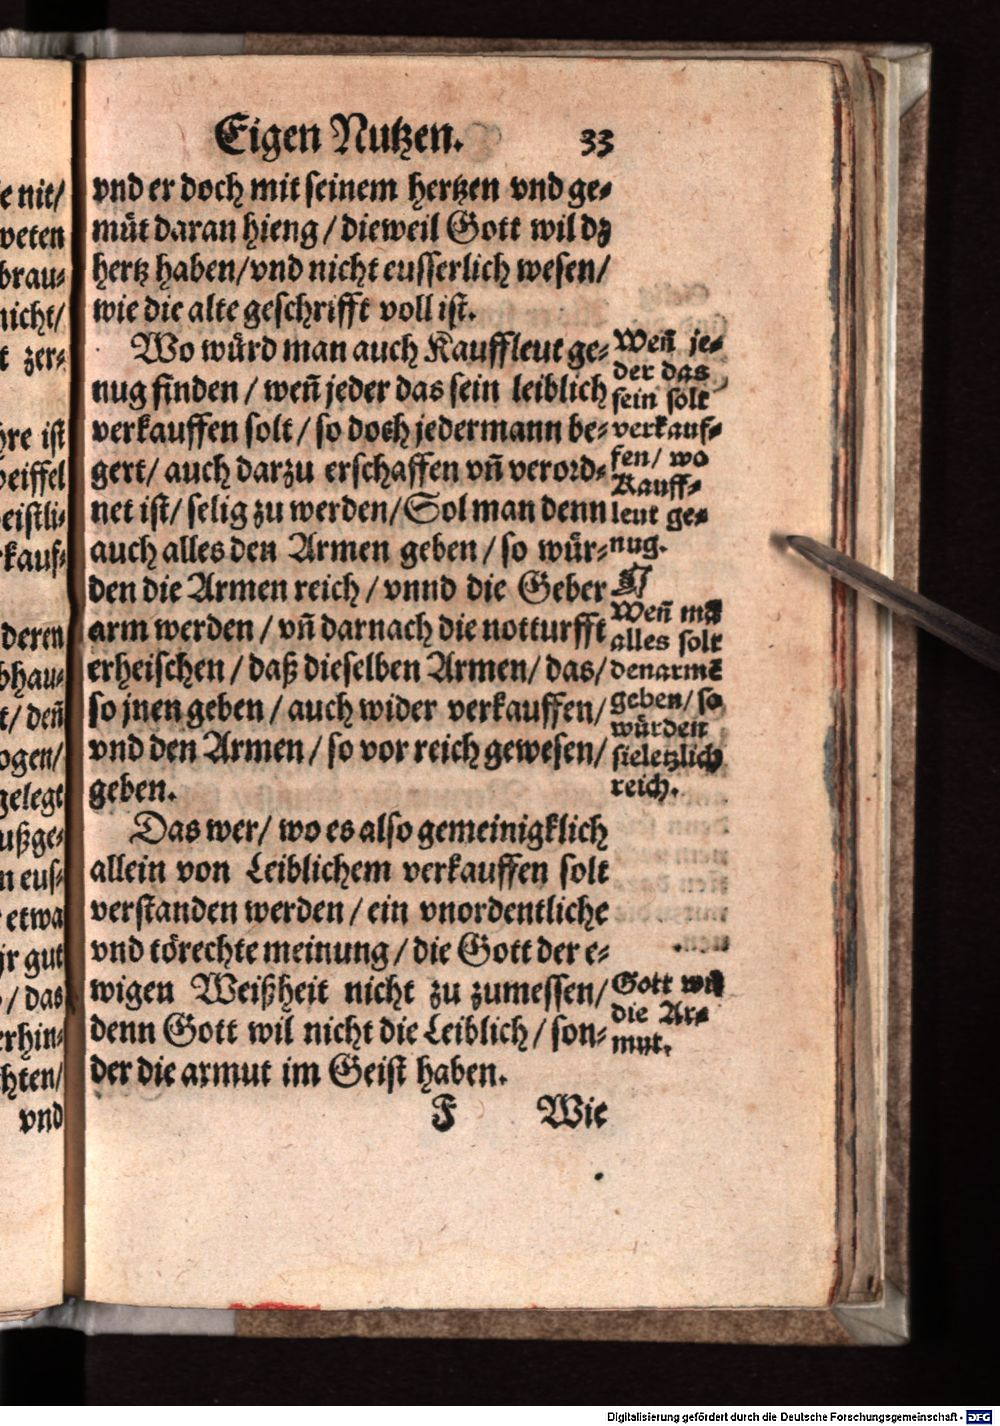 Eigen Nutzen. 33
vnd er doch mit seinem hertzen vnd ge-
müt daran hieng / dieweil Gott wil dz
hertz haben/vnd nicht eusserlich wesen/
wie die alte geschrifft voll ist.
Wo würd man auch Kauffleut ge-
nug finden / weñ jeder das sein leiblich
verkauffen solt / so doch jedermann be-
gert/ auch darzu erschaffen vñ verord-
net ist/ selig zu werden/Sol man denn
auch alles den Armen geben / so wür-
den die Armen reich / vnnd die Geber
arm werden / vñ darnach die notturfft
erheischen / daß dieselben Armen/ das/
so jnen geben / auch wider verkauffen/
vnd den Armen / so vor reich gewesen/
geben.
Das wer/ wo es also gemeinigklich
allein von Leiblichem verkauffen solt
verstanden werden / ein vnordentliche
vnd törechte meinung / die Gott der e-
wigen Weißheit nicht zu zumessen/
denn Gott wil nicht die Leiblich / son-
der die armut im Geist haben.
F Wie
Weñ je-
der das
sein solt
verkauf-
fen/ wo
Kauff-
leut ge-
nug.
Weñ mã
alles solt
den armẽ
geben/ so
würden
sie letzlich
reich.
Gott wil
die Ar-
mut.
e nit/
weten
brau-
nicht/
t zer-
hre ist
weiffel
eistli-
rkauf-
deren
bhau-
t/ deñ
ogen/
gelegt
ußge-
n eus-
etwa
jr gut
/ das
erhin-
hten/
vnd
Digitalisierung gefördert durch die Deutsche Forschungsgemeinschaft - DFG